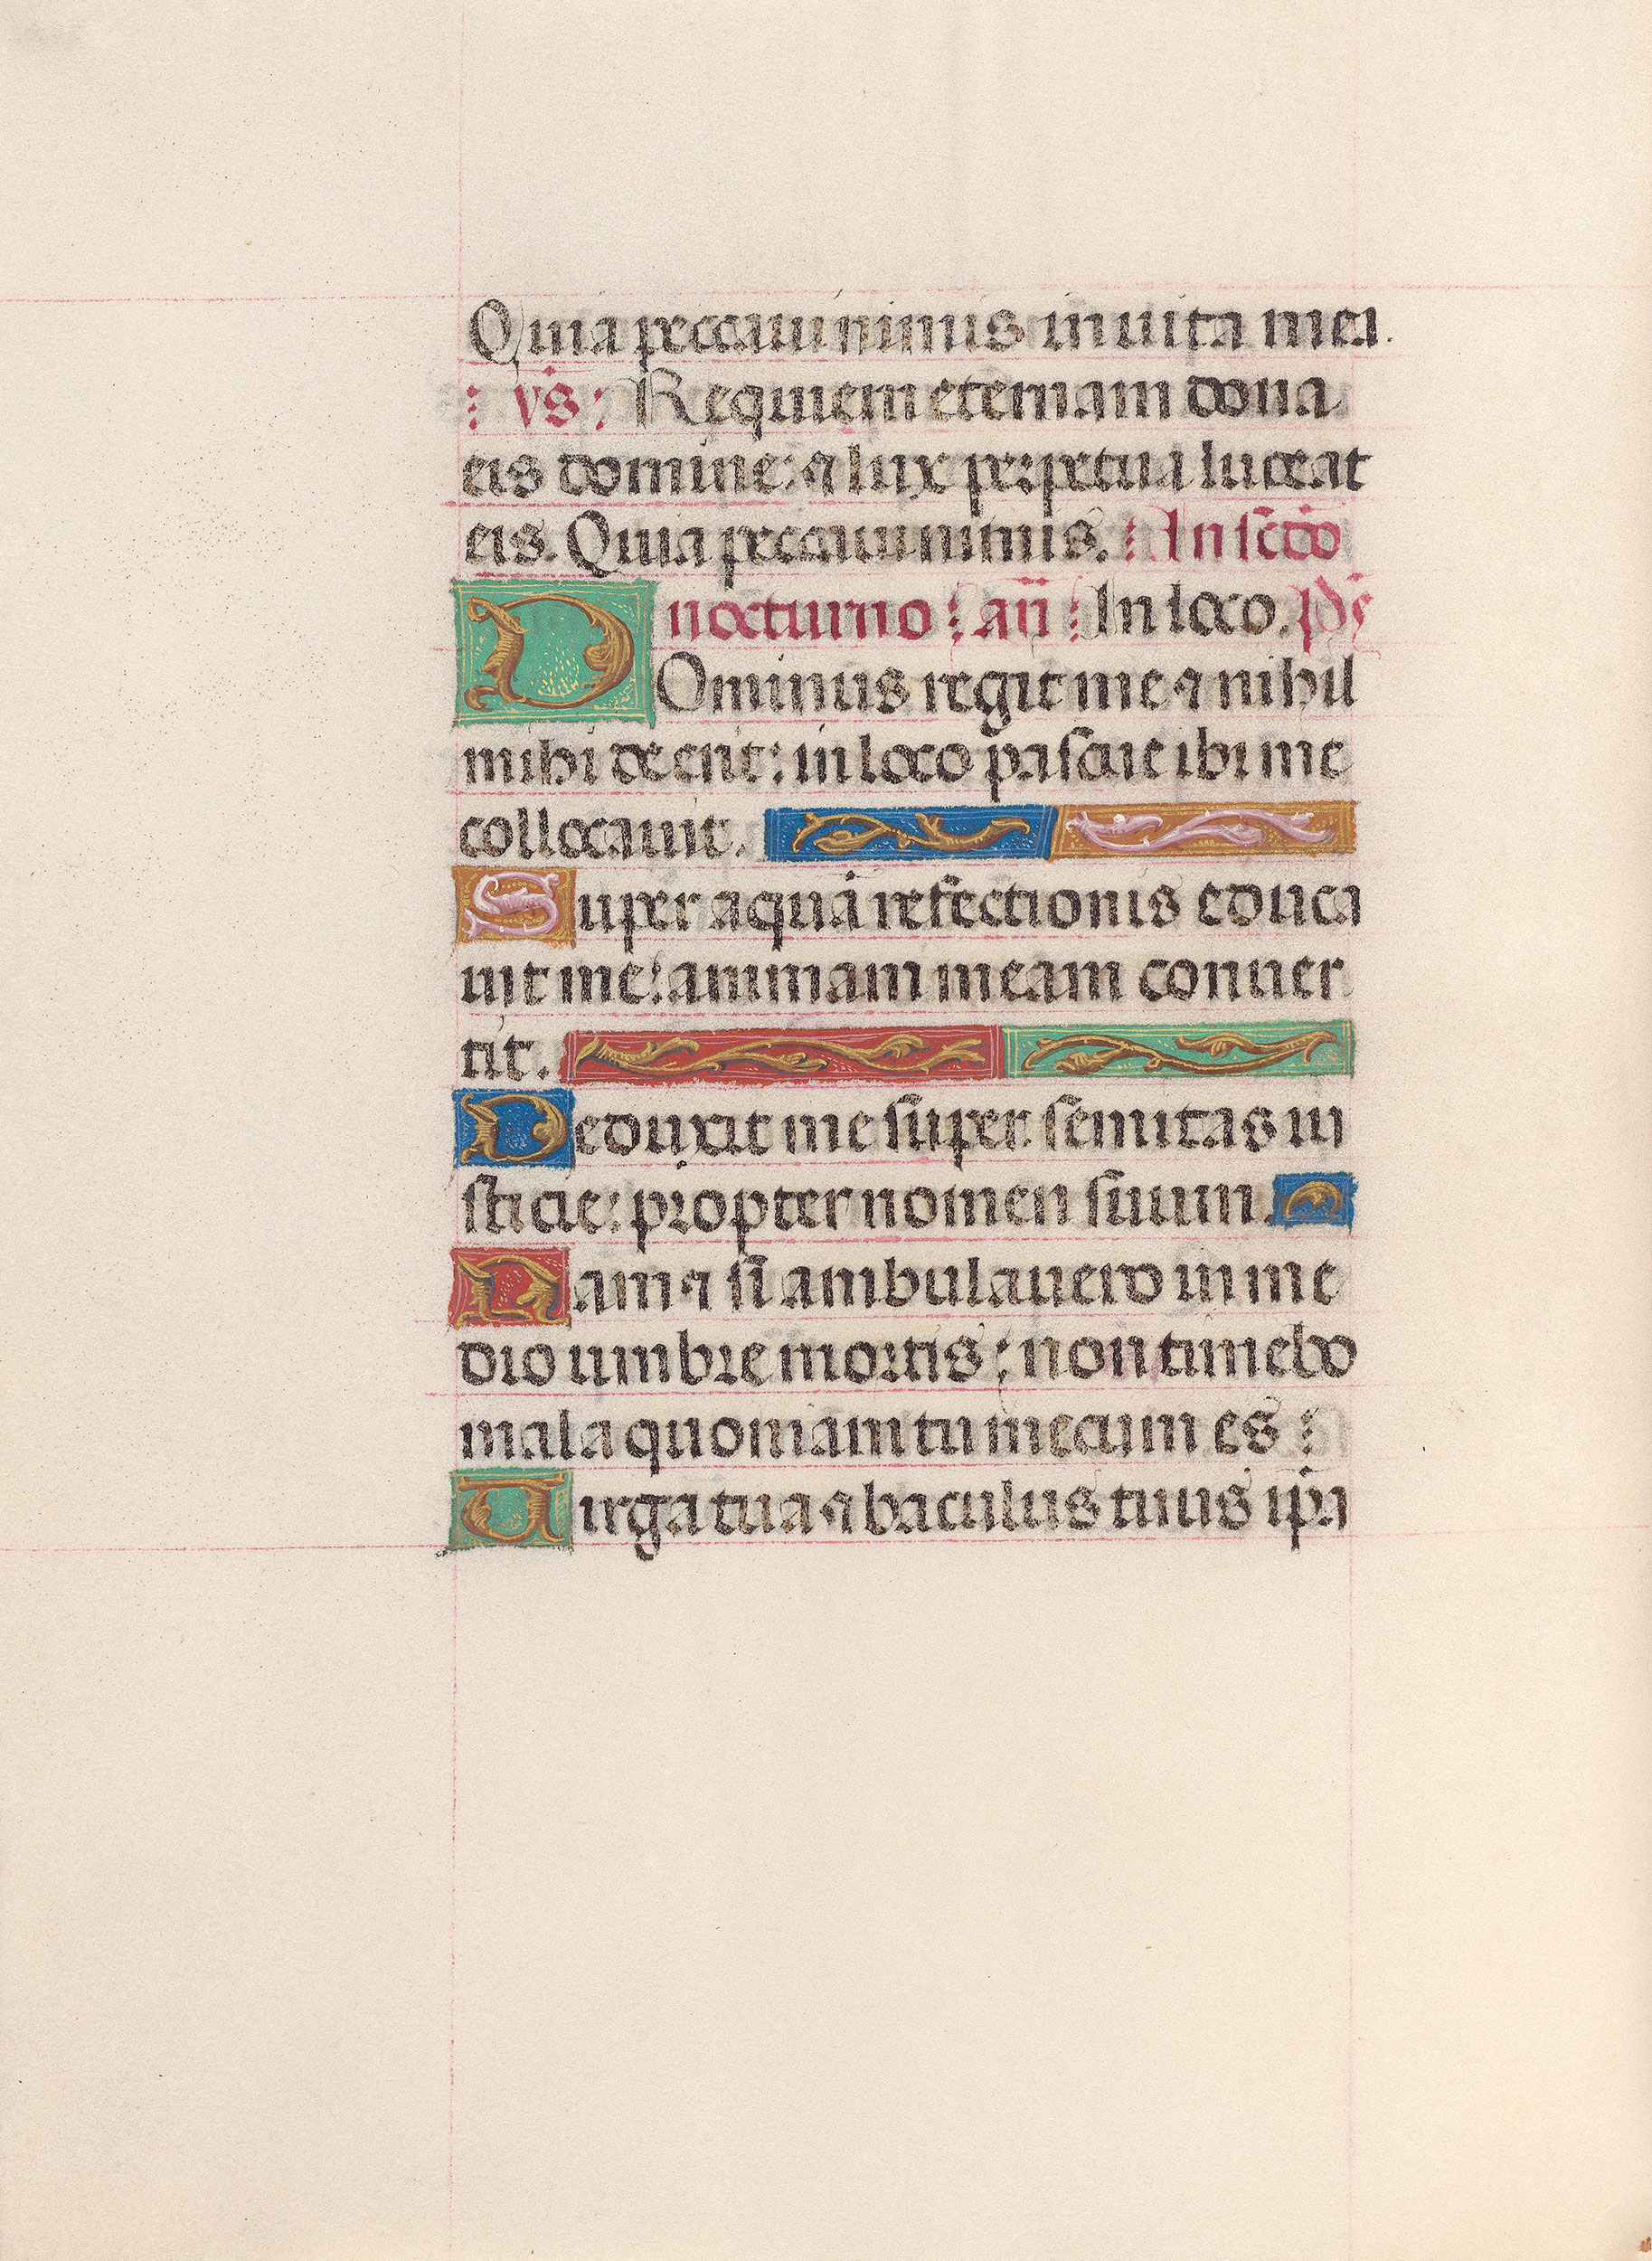 Quia peccauinimus in uita mea.
: vs̄ : Requiem eternam dona
eis domine: ⁊ lux perpetua luceat
eis. Quia peccauinimus. : In sc̄do
nocturno : an̄ : In loco. Ps̄
DOminus regit me ⁊ nihil
mihi deerit: in loco pascue ibi me
collocauit.
Super aquā refectionis educa
uit me: animam meam conuer
tit.
Deduxit me super semitas iu
sticie: propter nomen suum.
Nam ⁊ si ambulauero in me
dio umbre mortis: non timebo
mala quoniam tu mecum es :
Uirga tua ⁊ baculus tuus ipa